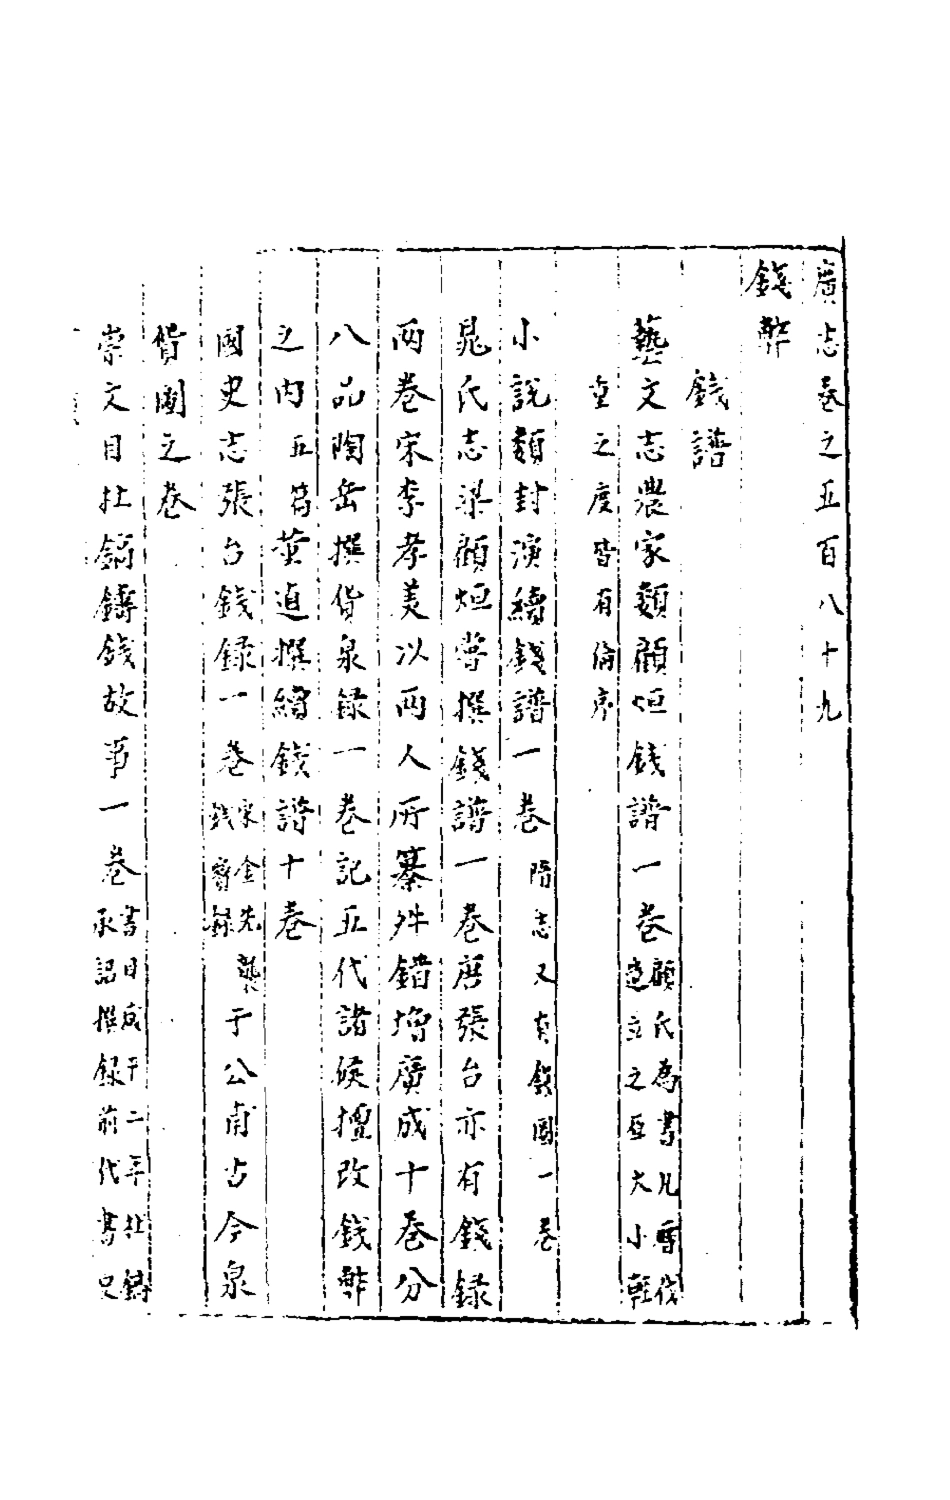 廣志卷之五百八十九
錢幣
錢譜
藝文志農家類顧烜錢譜一卷顧氏為書凡
造立之大小輕
重之度皆有倫序
小說類封演續錢譜一卷隋志又有錢圖一卷
晁氏志梁顧烜嘗撰錢譜一卷唐張台亦有錢録
兩卷宋李孝美以兩人所纂舛錯增廣成十卷分
八品陶岳撰貨泉録一卷記五代諸侯擅改錢幣
之內五董逌撰續錢譜十卷
國史志張台錢録一卷宋金先
錢寶録于公甫古今泉
貨圖之卷
崇文目杜鎬鑄錢故事一卷書目咸平二年杜鎬
承詔撰録前代書史